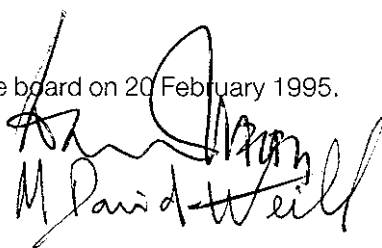 e board on 20 February 1995.
M David-Weill